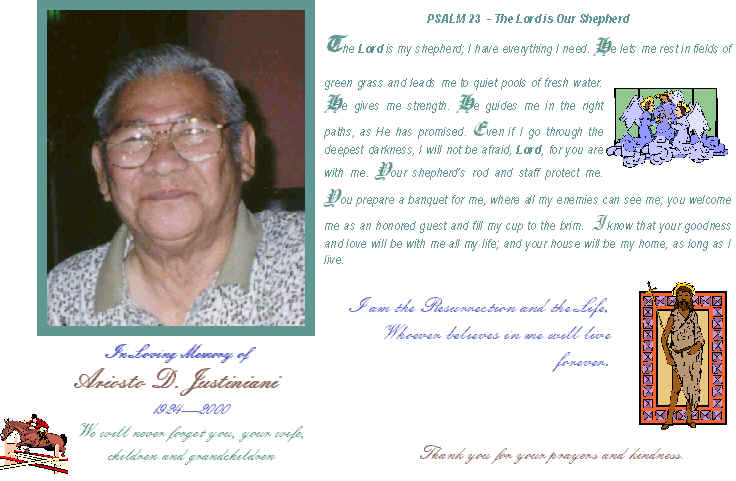 In Loving Memory of
Ariosto D. Justiniani
1924—2000
We will never forget you, your wife,
children and grandchildren
PSALM 23 - The Lord is Our Shepherd
The Lord is my shepherd; I have everything I need. He lets me rest in fields of
green grass and leads me to quiet pools of fresh water.
He gives me strength. He guides me in the right
paths, as He has promised. Even if I go through the
deepest darkness, I will not be afraid, Lord, for you are
with me. Your shepherd's rod and staff protect me.
You prepare a banquet for me, where all my enemies can see me; you welcome
me as an honored guest and fill my cup to the brim. I know that your goodness
and love will be with me all my life; and your house will be my home, as long as I
live:
I am the Resurrection and the Life.
Whoever believes in me will live
forever.
Thank you for your prayers and kindness.